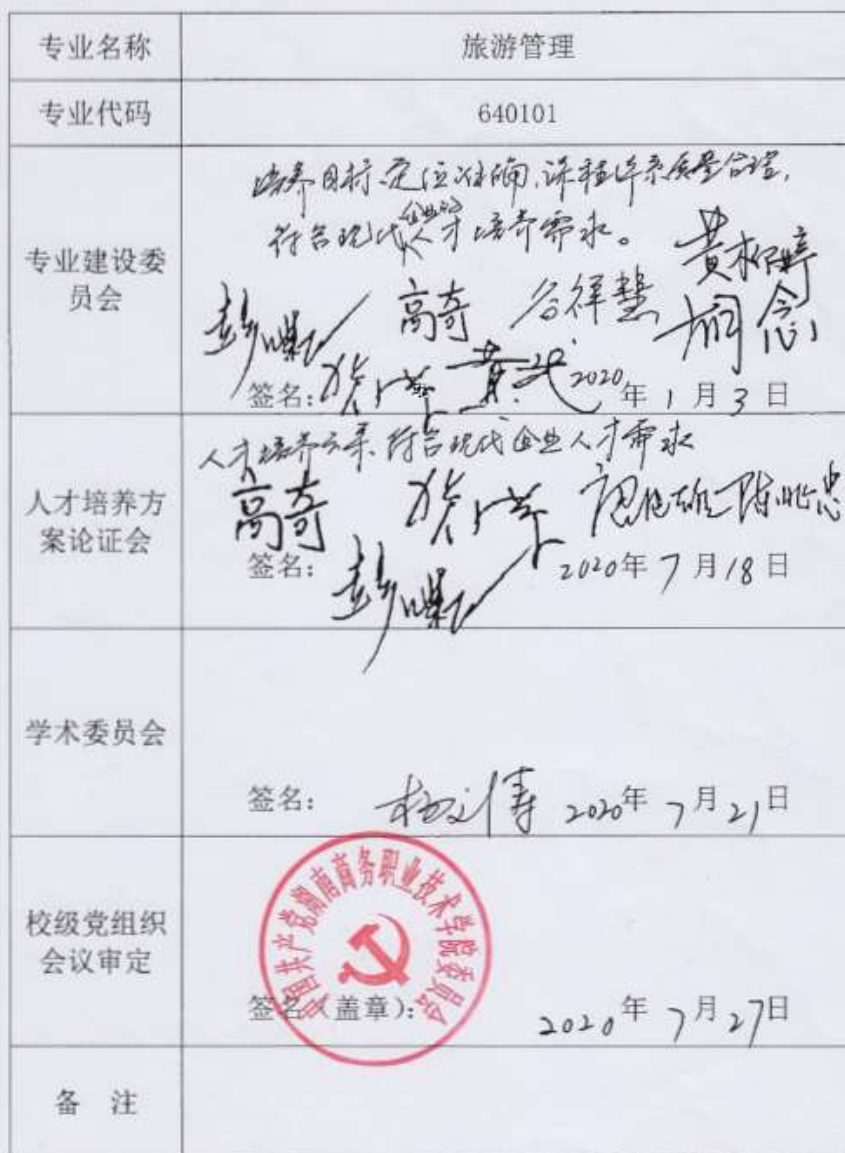 专业名称 旅游管理
专业代码 640101
专业建设委员会
培养目标定位准确,课程体系质量合理,
符合现代企业的人才培养需求。
黄柳婷
高奇 谷祥慧
签名: 2020年1月3日
人才培养方案论证会
人才培养方案符合现代企业人才需求
高奇
签名: 2020年7月18日
学术委员会
签名: 2020年7月21日
校级党组织会议审定
中国共产党湖南商务职业技术学院委员会
签名(盖章): 2020年7月27日
备 注